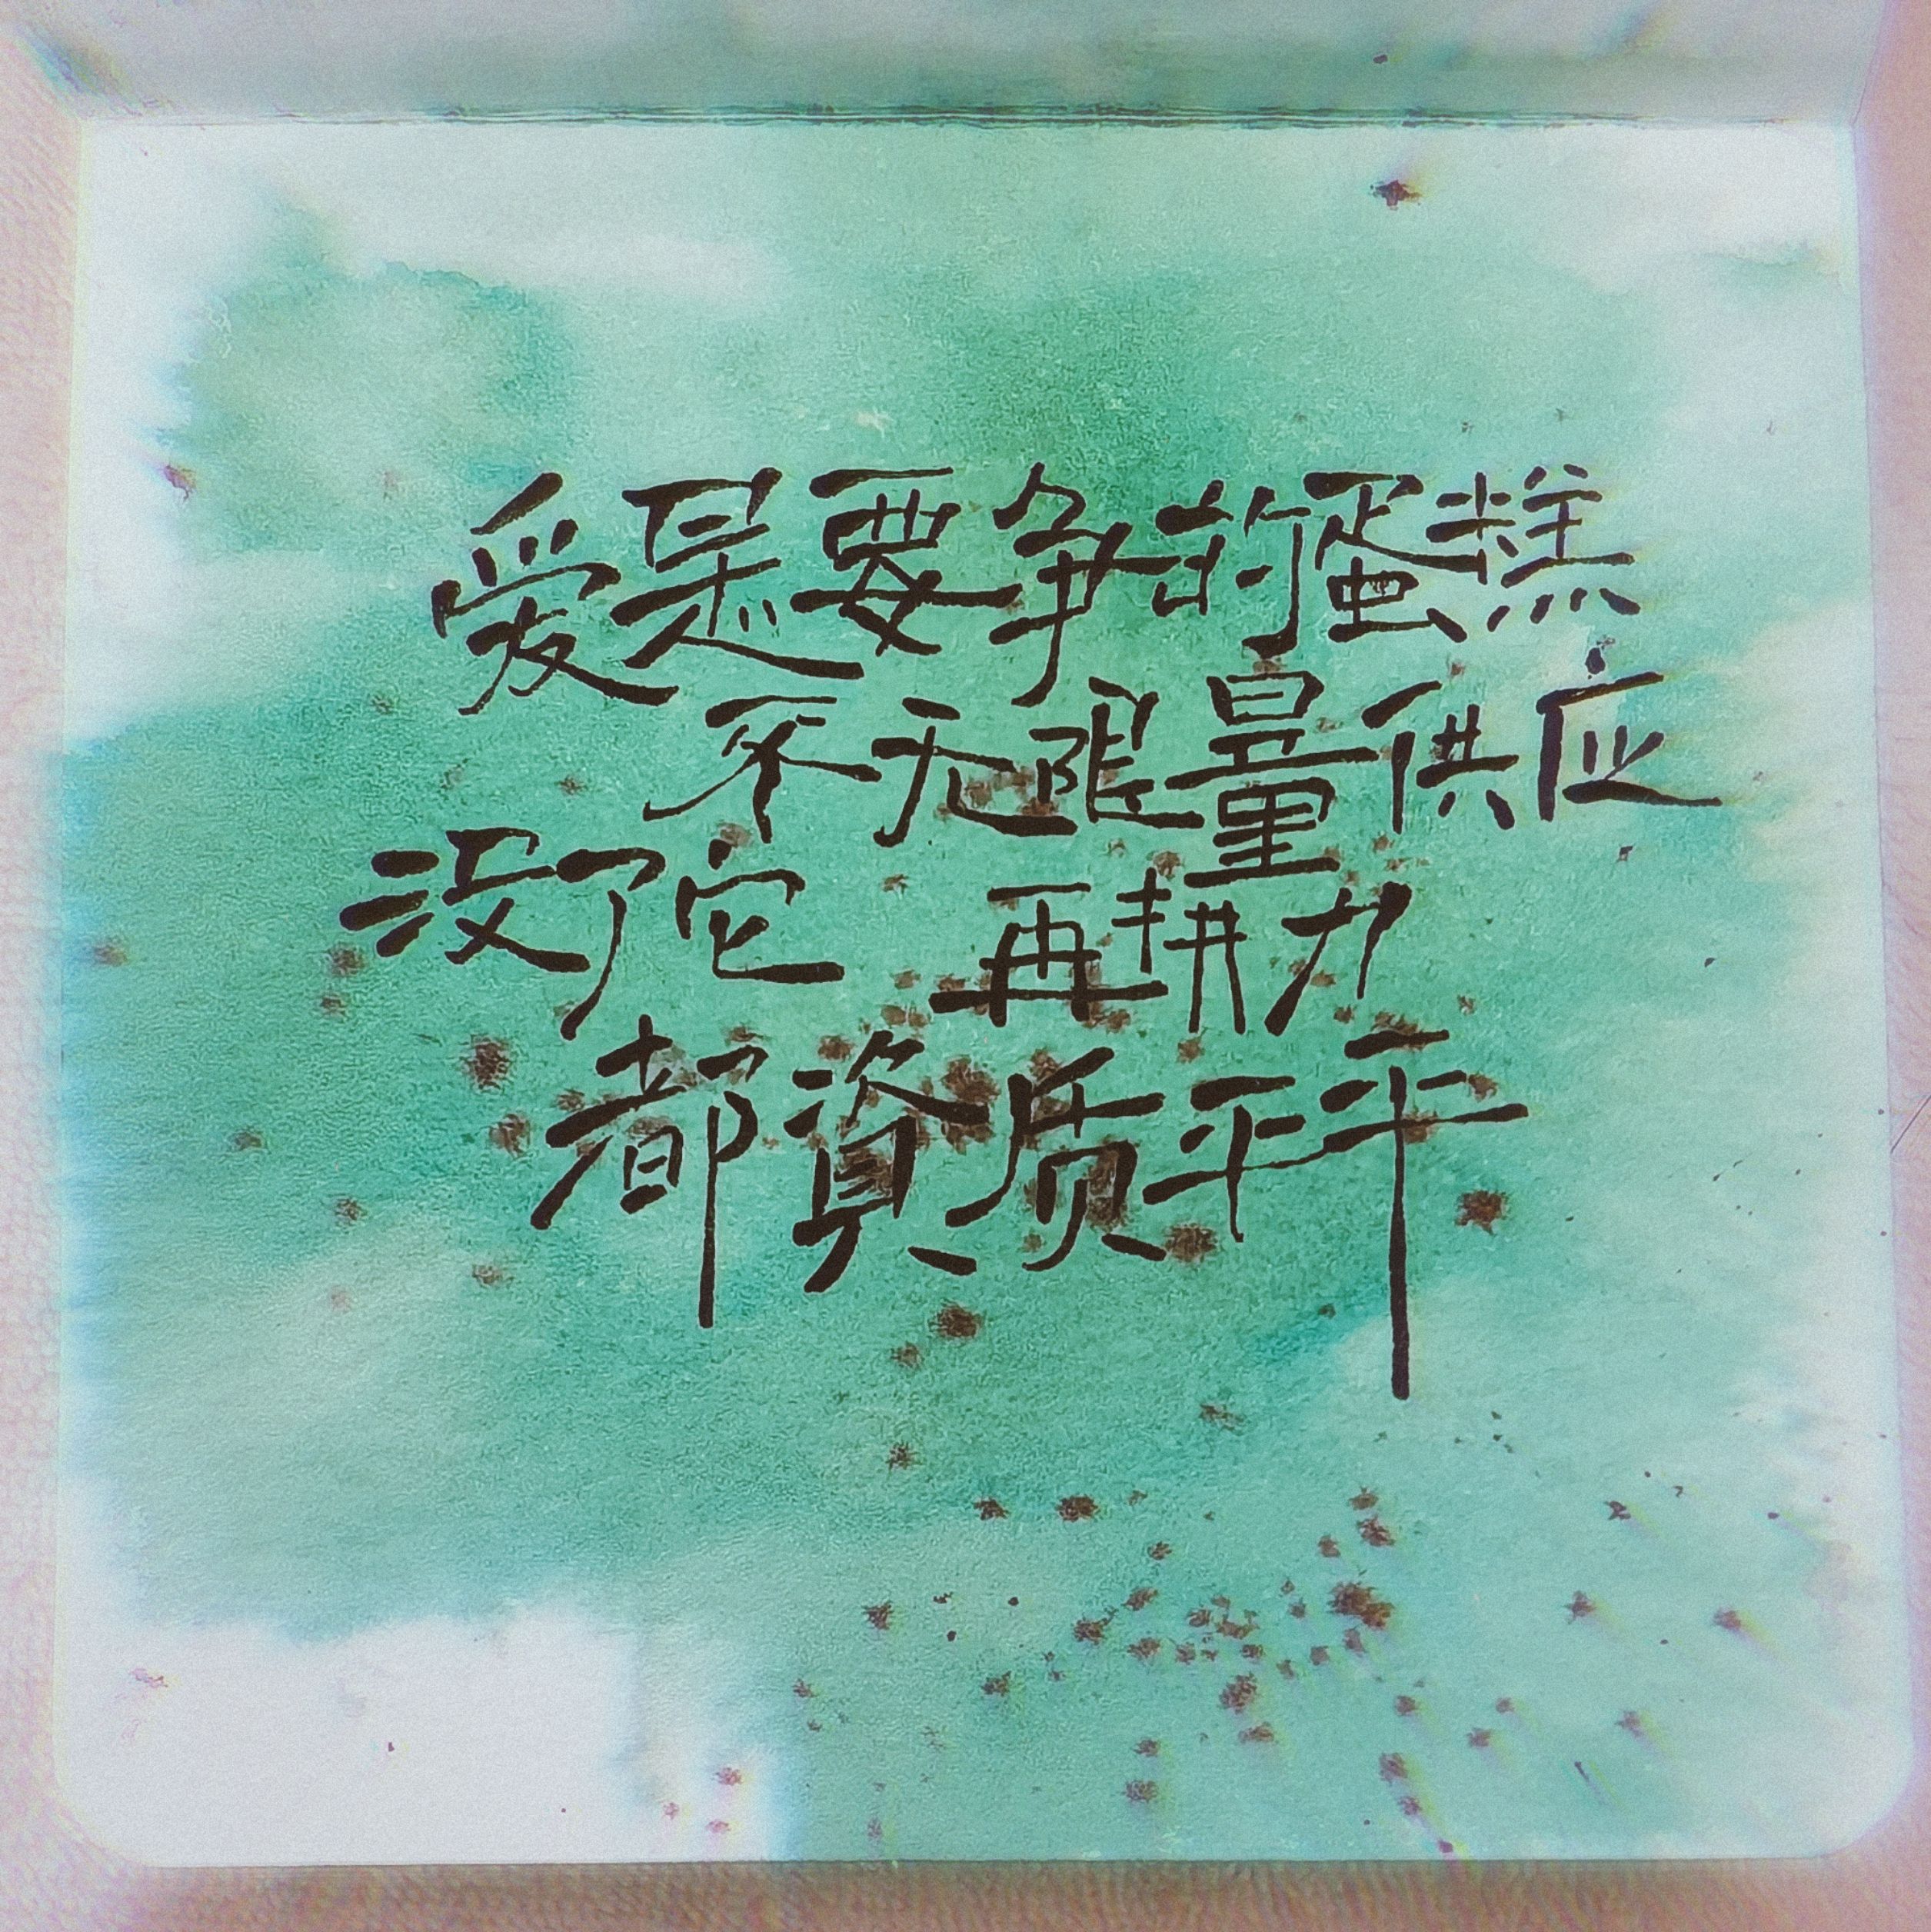 爱是要争的蛋糕
不无限量供应
没了它 再耕力
都資质平平